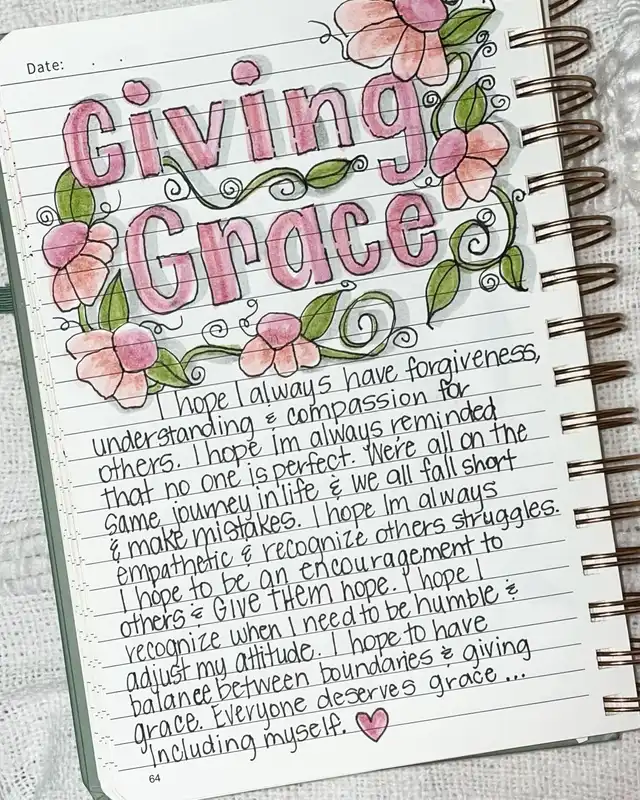 Date:
Giving
Grace
I hope I always have forgiveness,
understanding & compassion for
others. I hope Im always reminded
that no one is perfect. We're all on the
same journey in life & we all fall short
& make mistakes. I hope Im always
empathetic & recognize others struggles.
I hope to be an encouragement to
others & GIVE THEM hope. I hope I
recognize when I need to be humble &
adjust my attitude. I hope to have
balance between boundaries & giving
grace. Everyone deserves grace...
Including myself.
64